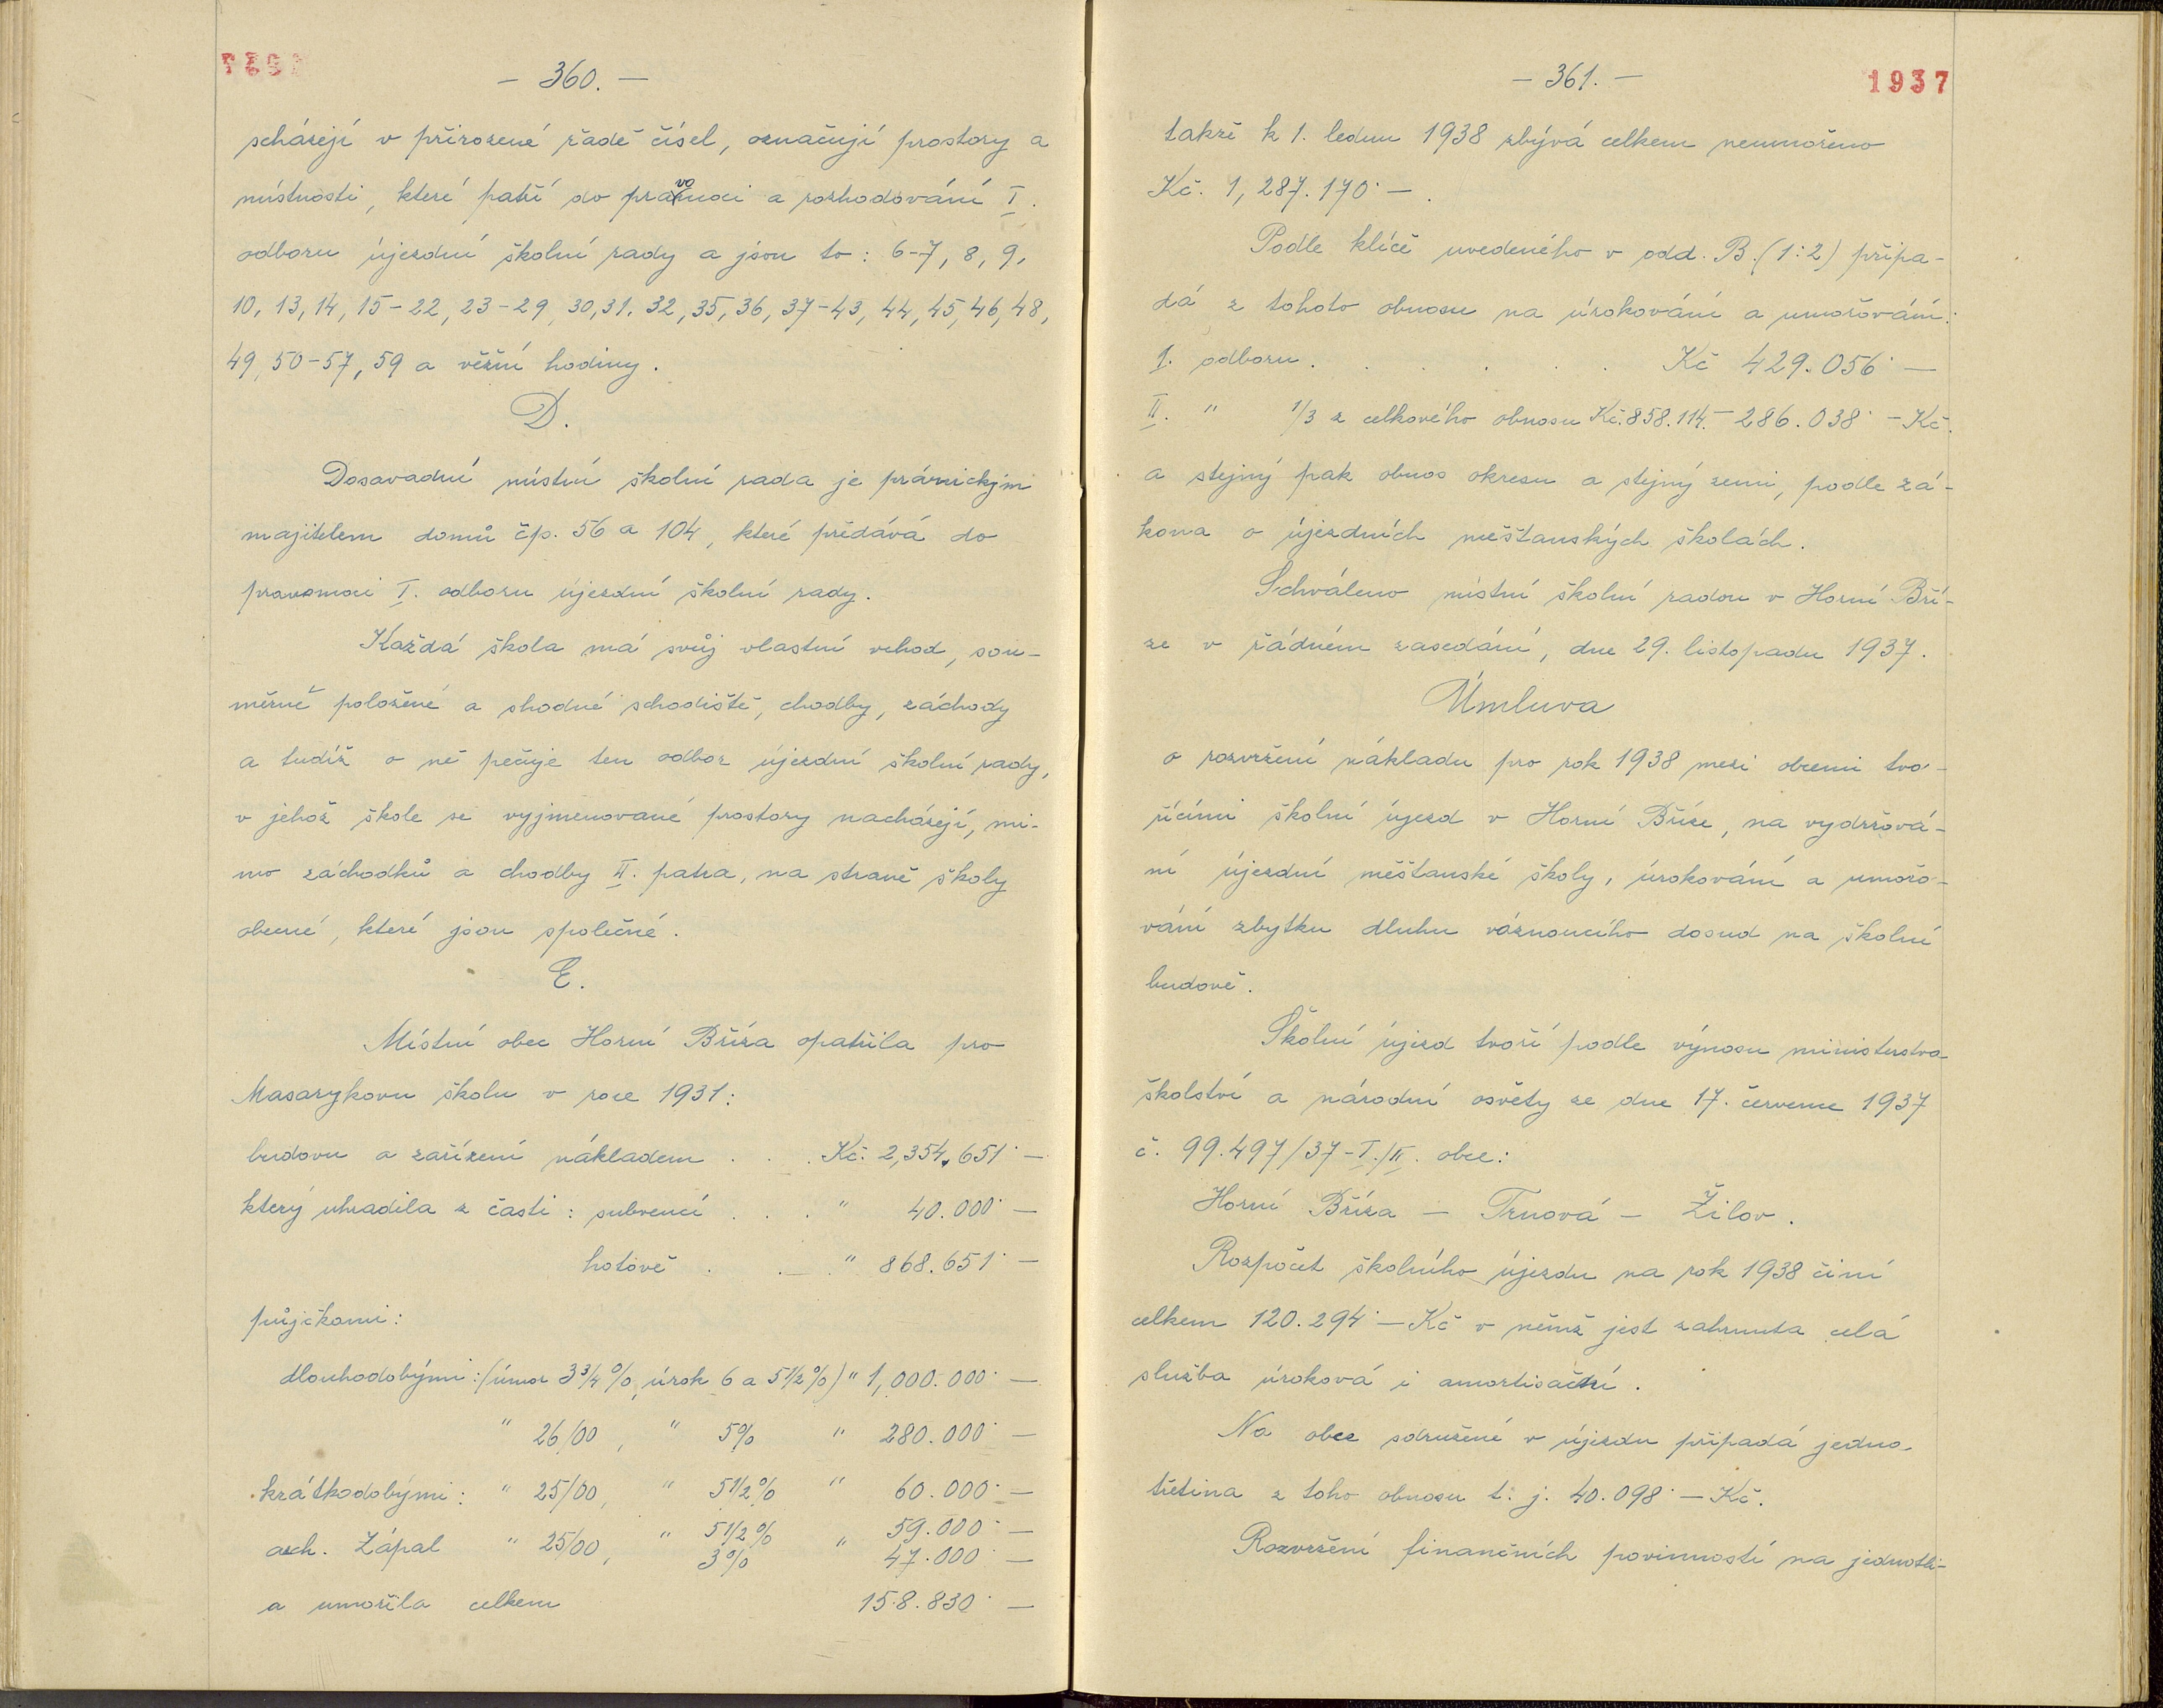 — 360. —
scházejí v přirozené řadě čísel, označují prostory a
místnosti, které patří do pravomoci a rozhodování I.
odboru újezdní školní rady a jsou to: 6-7, 8, 9,
10, 13, 14, 15-22, 23-29, 30, 31, 32, 35, 36, 37-43, 44, 45, 46, 48,
49, 50-57, 59 a věžní hodiny.
D.
Dosavadní místní školní rada je právnickým
majitelem domů čp. 56 a 104, které předává do
pravomoci I. odboru újezdní školní rady.
Každá škola má svůj vlastní vchod, sou-
měrně položené a shodné schodiště, chodby, záchody
a tudíž o ně pečuje ten odbor újezdní školní rady,
v jehož škole se vyjmenované prostory nacházejí, mi-
mo záchodků a chodby II. patra, na straně školy
obecné, které jsou společné.
E.
Místní obec Horní Bříza opatřila pro
Masarykovu školu v roce 1931:
budovu a zařízení nákladem . . . Kč. 2,354.651·—
který uhradila z části: subvencí . . . " 40.000·—
hotově . . . " 868.651·—
půjčkami:
dlouhodobými: (úmor 3 3/4 %, úrok 6 a 5 1/2 %) " 1,000.000·—
" 26/00, " 5% " 280.000·—
krátkodobými: " 25/00, " 5 1/2 % " 60.000·—
arch. Zápal " 25/00, " 5 1/2 % " 59.000·—
3% 47.000·—
a umořila celkem 158.830·—
— 361. —
1937
takže k 1. lednu 1938 zbývá celkem neumořeno
Kč. 1,287.170·—.
Podle klíče uvedeného v odd. B. (1:2) připa-
dá z tohoto obnosu na úrokování a umořování:
I. odboru . . . . . . Kč 429.056·—
II. " 1/3 z celkového obnosu Kč. 858.114.— 286.038·— Kč.
a stejný pak obnos okresu a stejný zemi, podle zá-
kona o újezdních měšťanských školách.
Schváleno místní školní radou v Horní Bří-
ze v řádném zasedání, dne 29. listopadu 1937.
Úmluva
o rozvržení nákladu pro rok 1938 mezi obcemi tvo-
řícími školní újezd v Horní Bříze, na vydržová-
ní újezdní měšťanské školy, úrokování a umořo-
vání zbytku dluhu váznoucího dosud na školní
budově.
Školní újezd tvoří podle výnosu ministerstva
školství a národní osvěty ze dne 17. července 1937
č. 99.497/37-I./II. obce:
Horní Bříza — Trnová — Žilov.
Rozpočet školního újezdu na rok 1938 činí
celkem 120.294·— Kč v němž jest zahrnuta celá
služba úroková i amortisační.
Na obce sdružené v újezdu připadá jedna
třetina z toho obnosu t. j. 40.098·— Kč.
Rozvržení finančních povinností na jednotli-